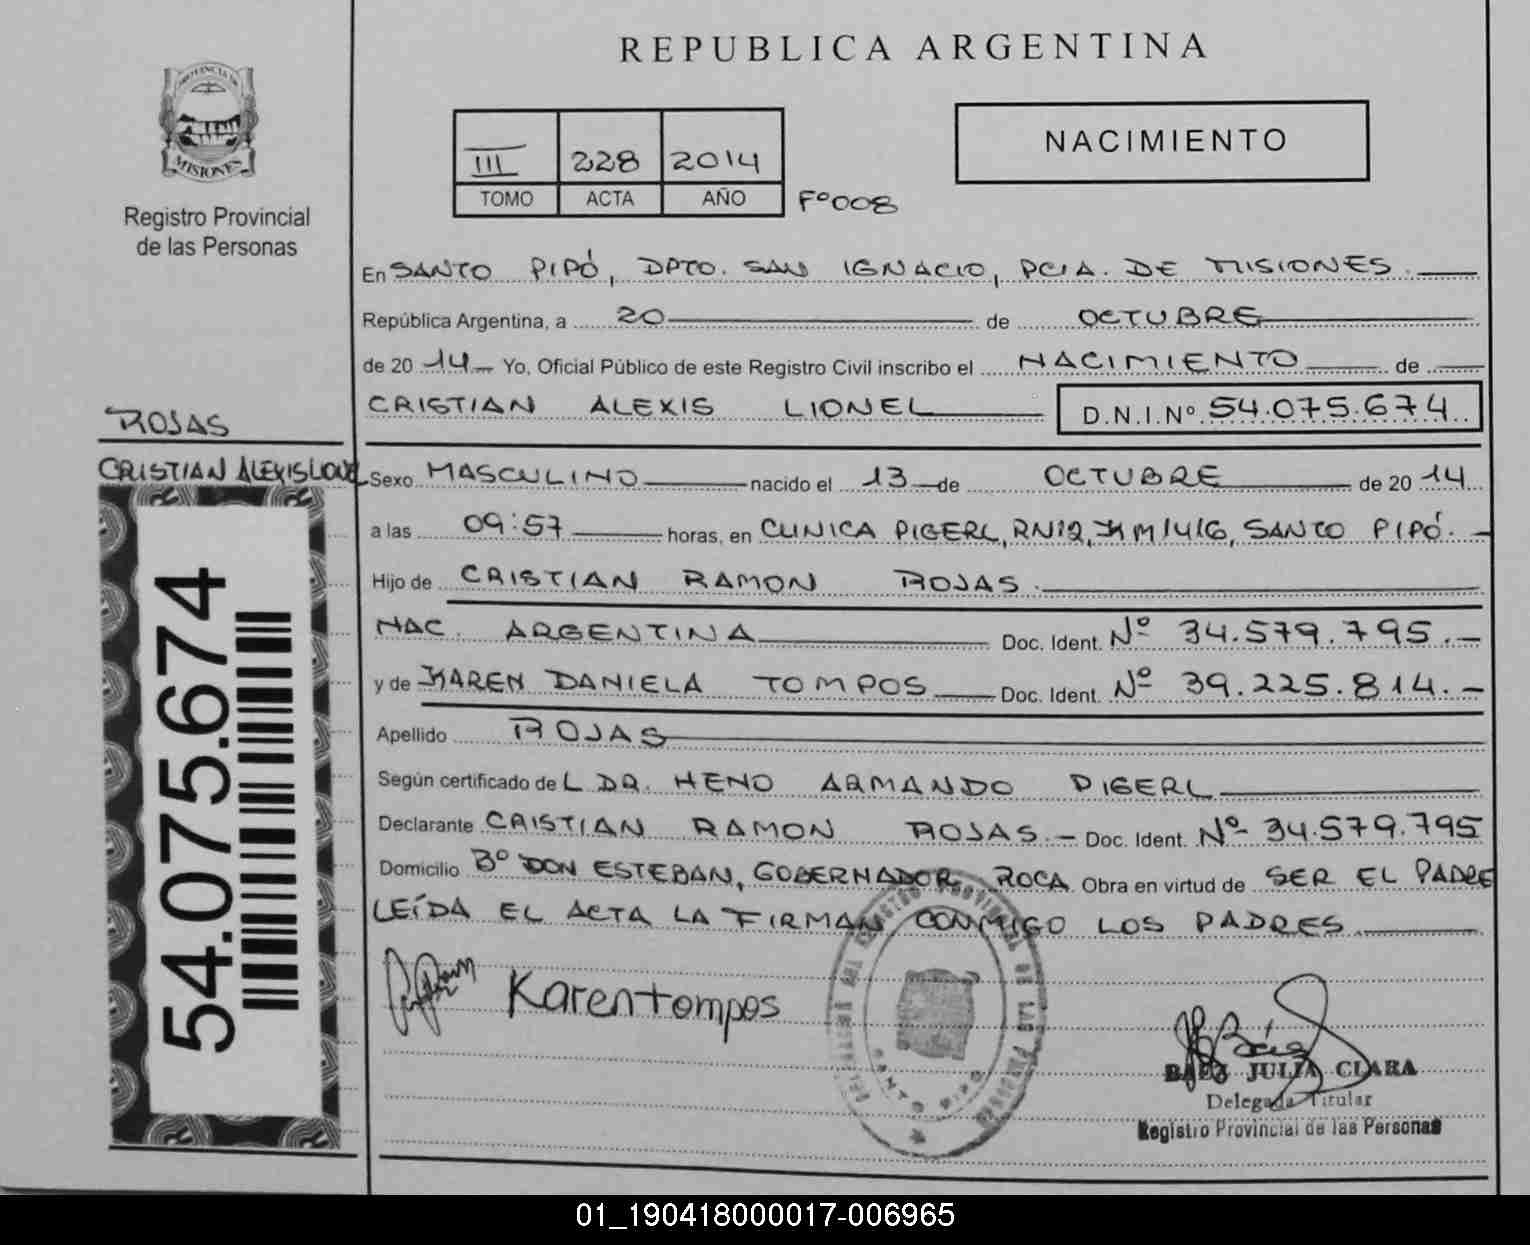 REPUBLICA ARGENTINA
PROVINCIA DE
MISIONES
Registro Provincial
de las Personas
III 228 2014
TOMO ACTA AÑO Fº008
NACIMIENTO
En SANTO PIPÓ, DPTO. SAN IGNACIO, PCIA. DE MISIONES.
República Argentina, a 20 de OCTUBRE
de 2014 Yo, Oficial Público de este Registro Civil inscribo el NACIMIENTO de
CRISTIAN ALEXIS LIONEL D.N.I.Nº 54.075.674
ROJAS
CRISTIAN ALEXIS LIONEL
Sexo MASCULINO nacido el 13 de OCTUBRE de 2014
a las 09:57 horas, en CLINICA PIGERL, RN12, KM1416, SANTO PIPÓ.
Hijo de CRISTIAN RAMON ROJAS.
NAC. ARGENTINA Doc. Ident. Nº 34.579.795.
y de KAREN DANIELA TOMPOS Doc. Ident. Nº 39.225.814.
Apellido ROJAS
Según certificado de L DR. HENO ARMANDO PIGERL
Declarante CRISTIAN RAMON ROJAS. Doc. Ident. Nº 34.579.795
Domicilio Bº DON ESTEBAN, GOBERNADOR ROCA. Obra en virtud de SER EL PADRE
LEÍDA EL ACTA LA FIRMAN CONMIGO LOS PADRES.
54.075.674
Karen tompos
SANTO PIPO
Báez
BAEZ JULIA CLARA
Delegada Titular
Registro Provincial de las Personas
01_190418000017-006965